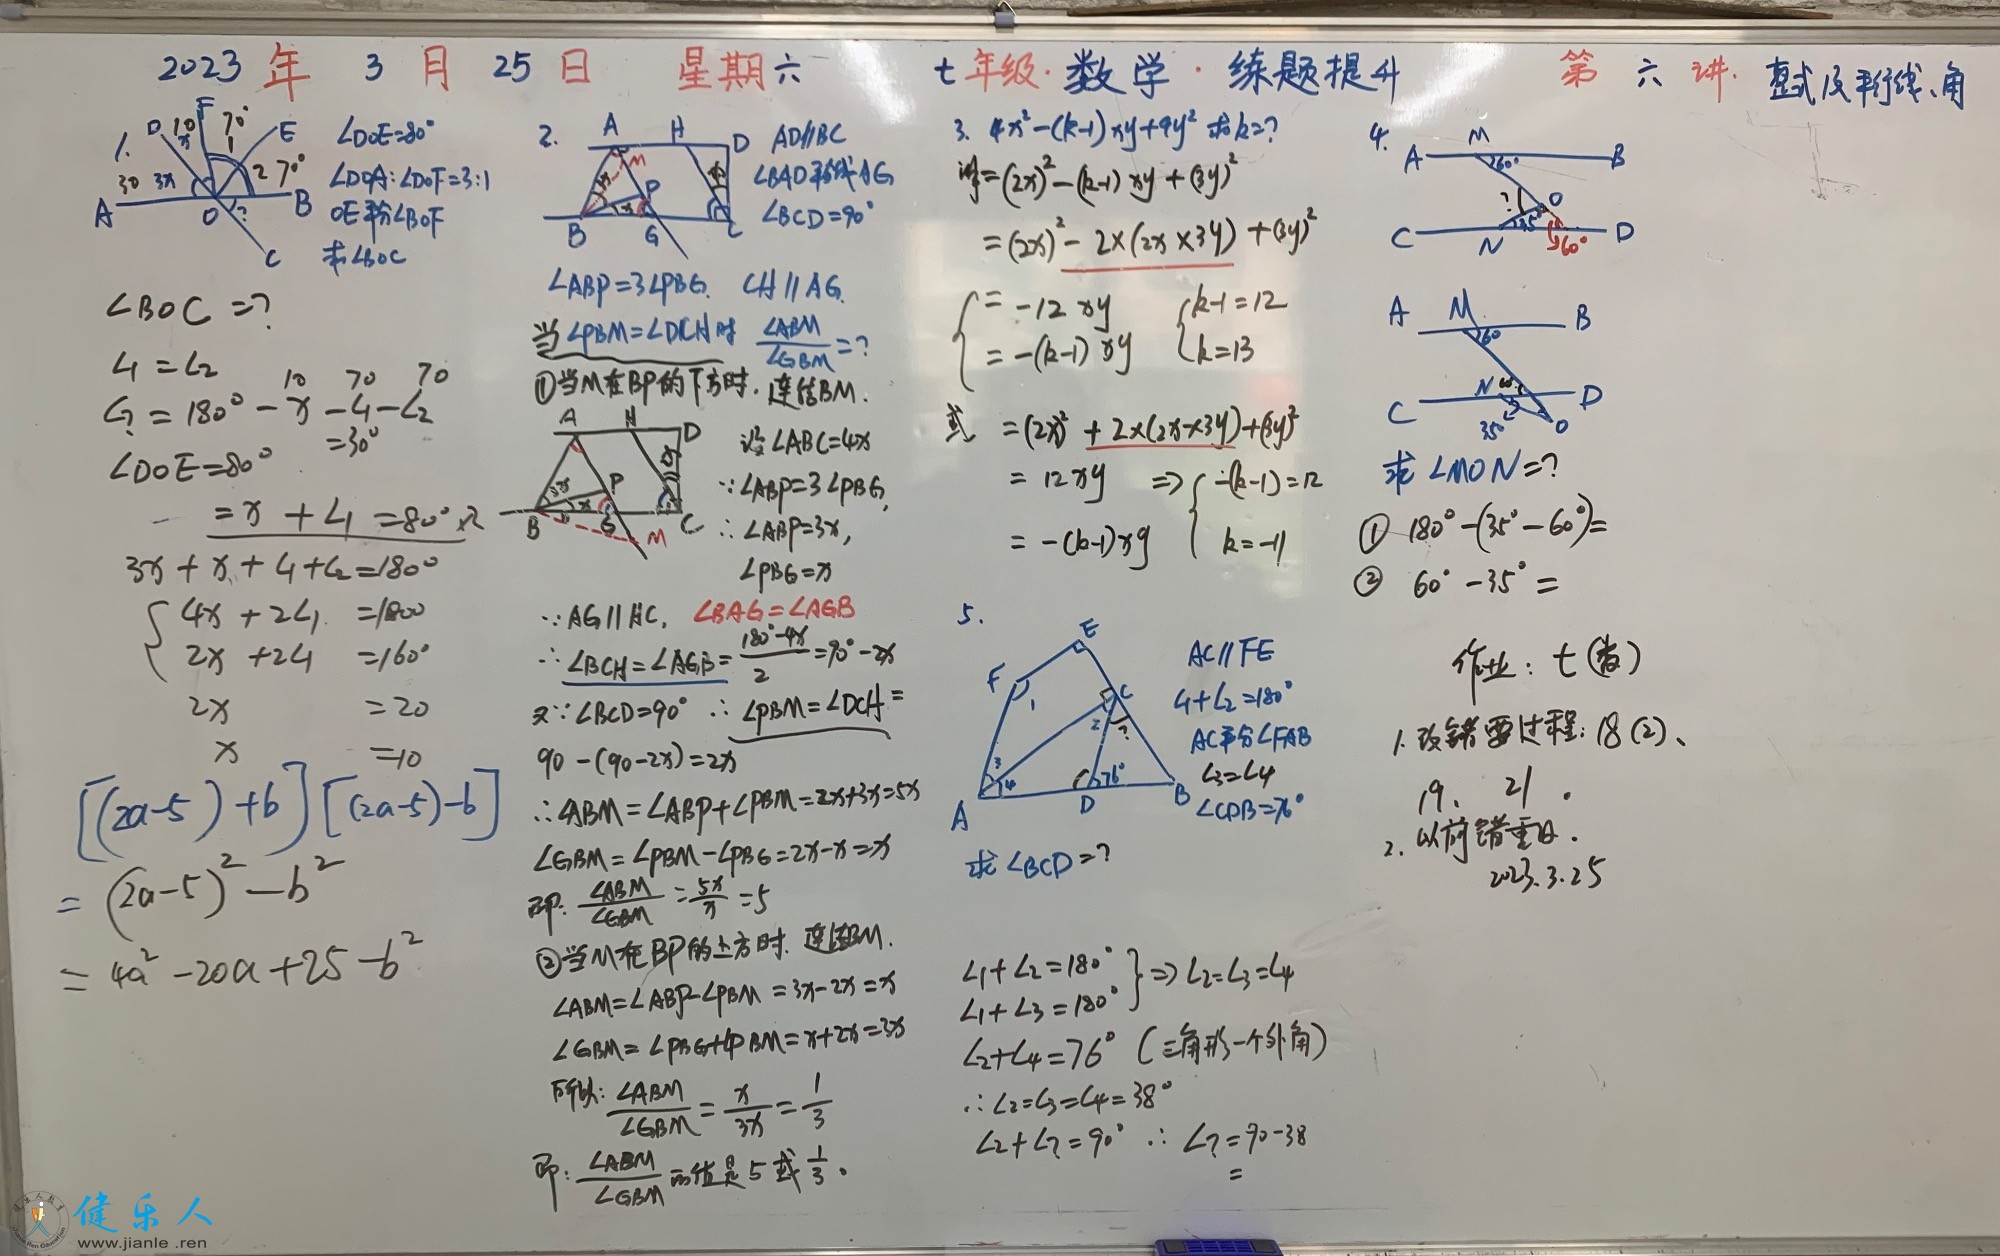 2023 年 3 月 25 日 星期六 七年级·数学·练题提升 第 六 讲. 整式及平行线、角
1.
D 10 F 70° E
x 1
30 3x 2 70°
A O ? B
C
∠DOE=80°
∠DOA:∠DOF=3:1
OE平分∠BOF
求∠BOC
∠BOC =?
∠1 = ∠2
10 70 70
∠? = 180° - x - ∠1 - ∠2
=30°
∠DOE=80°
= x + ∠1 =80° ×2
3x + x + ∠1 + ∠2 =180°
4x + 2∠1 =180°
2x + 2∠1 =160°
2x =20
x =10
[(2a-5)+b][(2a-5)-b]
= (2a-5)² - b²
= 4a² - 20a + 25 - b²
2.
A H D
M
P
B G C
AD∥BC
∠BAD平分线AG
∠BCD=90°
∠ABP=3∠PBG. CH∥AG.
当∠PBM=∠DCH时 ∠ABM/∠GBM=?
①当M在BP的下方时. 连结BM.
A H D
3x P
x
B G C
M
设∠ABC=4x
∵∠ABP=3∠PBG,
∴∠ABP=3x,
∠PBG=x
∵AG∥HC, ∠BAG=∠AGB
∴∠BCH=∠AGB=180°-4x/2=90°-2x
又∵∠BCD=90° ∴∠PBM=∠DCH=
90-(90-2x)=2x
∴∠ABM=∠ABP+∠PBM=2x+3x=5x
∠GBM=∠PBM-∠PBG=2x-x=x
即: ∠ABM/∠GBM=5x/x=5
②当M在BP的上方时. 连结BM.
∠ABM=∠ABP-∠PBM=3x-2x=x
∠GBM=∠PBG+∠PBM=x+2x=3x
所以: ∠ABM/∠GBM=x/3x=1/3
即: ∠ABM/∠GBM的值是5或1/3.
3. 4x²-(k-1)xy+9y² 求k=?
解=(2x)²-(k-1)xy+(3y)²
=(2x)²-2×(2x×3y)+(3y)²
= -12xy k-1=12
= -(k-1)xy k=13
或 =(2x)²+2×(2x×3y)+(3y)²
= 12xy ⇒ -(k-1)=12
= -(k-1)xy k=-11
5.
E
F 1 C
2 ?
3
4 76°
A D B
AC∥FE
∠1+∠2=180°
AC平分∠FAB
∠3=∠4
∠CDB=76°
求∠BCD=?
∠1+∠2=180°
∠1+∠3=180° ⇒∠2=∠3=∠4
∠2+∠4=76° (三角形一个外角)
∴∠2=∠3=∠4=38°
∠2+∠?=90° ∴∠?=90-38
=
4.
M
A 60° B
? O
C N 35° 60° D
A M B
60
C N D
35° O
求∠MON=?
① 180°-(35°-60°)=
② 60°-35°=
作业: 七(春)
1. 改错要过程: 18(2)、
19、 21.
2. 以前错重做.
2023.3.25
健乐人
www.jianle.ren